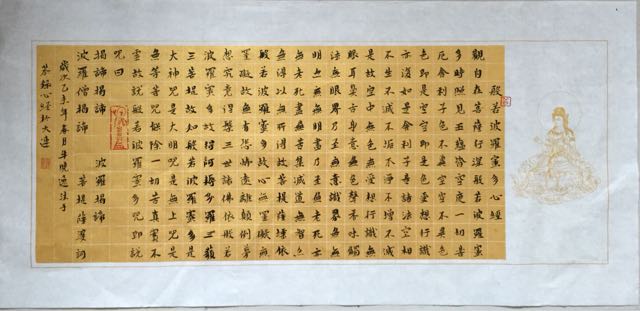 般若波羅蜜多心經
觀自在菩薩行深般若波羅蜜
多時照見五蘊皆空度一切苦
厄舍利子色不異空空不異色
色即是空空即是色受想行識
亦復如是舍利子是諸法空相
不生不滅不垢不淨不增不減
是故空中無色無受想行識無
眼耳鼻舌身意無色聲香味觸
法無眼界乃至無意識界無無
明亦無無明盡乃至無老死亦
無老死盡無苦集滅道無智亦
無得以無所得故菩提薩埵依
般若波羅蜜多故心無罣礙無
罣礙故無有恐怖遠離顛倒夢
想究竟涅槃三世諸佛依般若
波羅蜜多故得阿耨多羅三藐
三菩提故知般若波羅蜜多是
大神咒是大明咒是無上咒是
無等等咒能除一切苦真實不
虛故說般若波羅蜜多咒即說
咒曰
揭諦揭諦 波羅揭諦
波羅僧揭諦 菩提薩婆訶
歲次乙未年春月 沐手
恭錄心經於大連